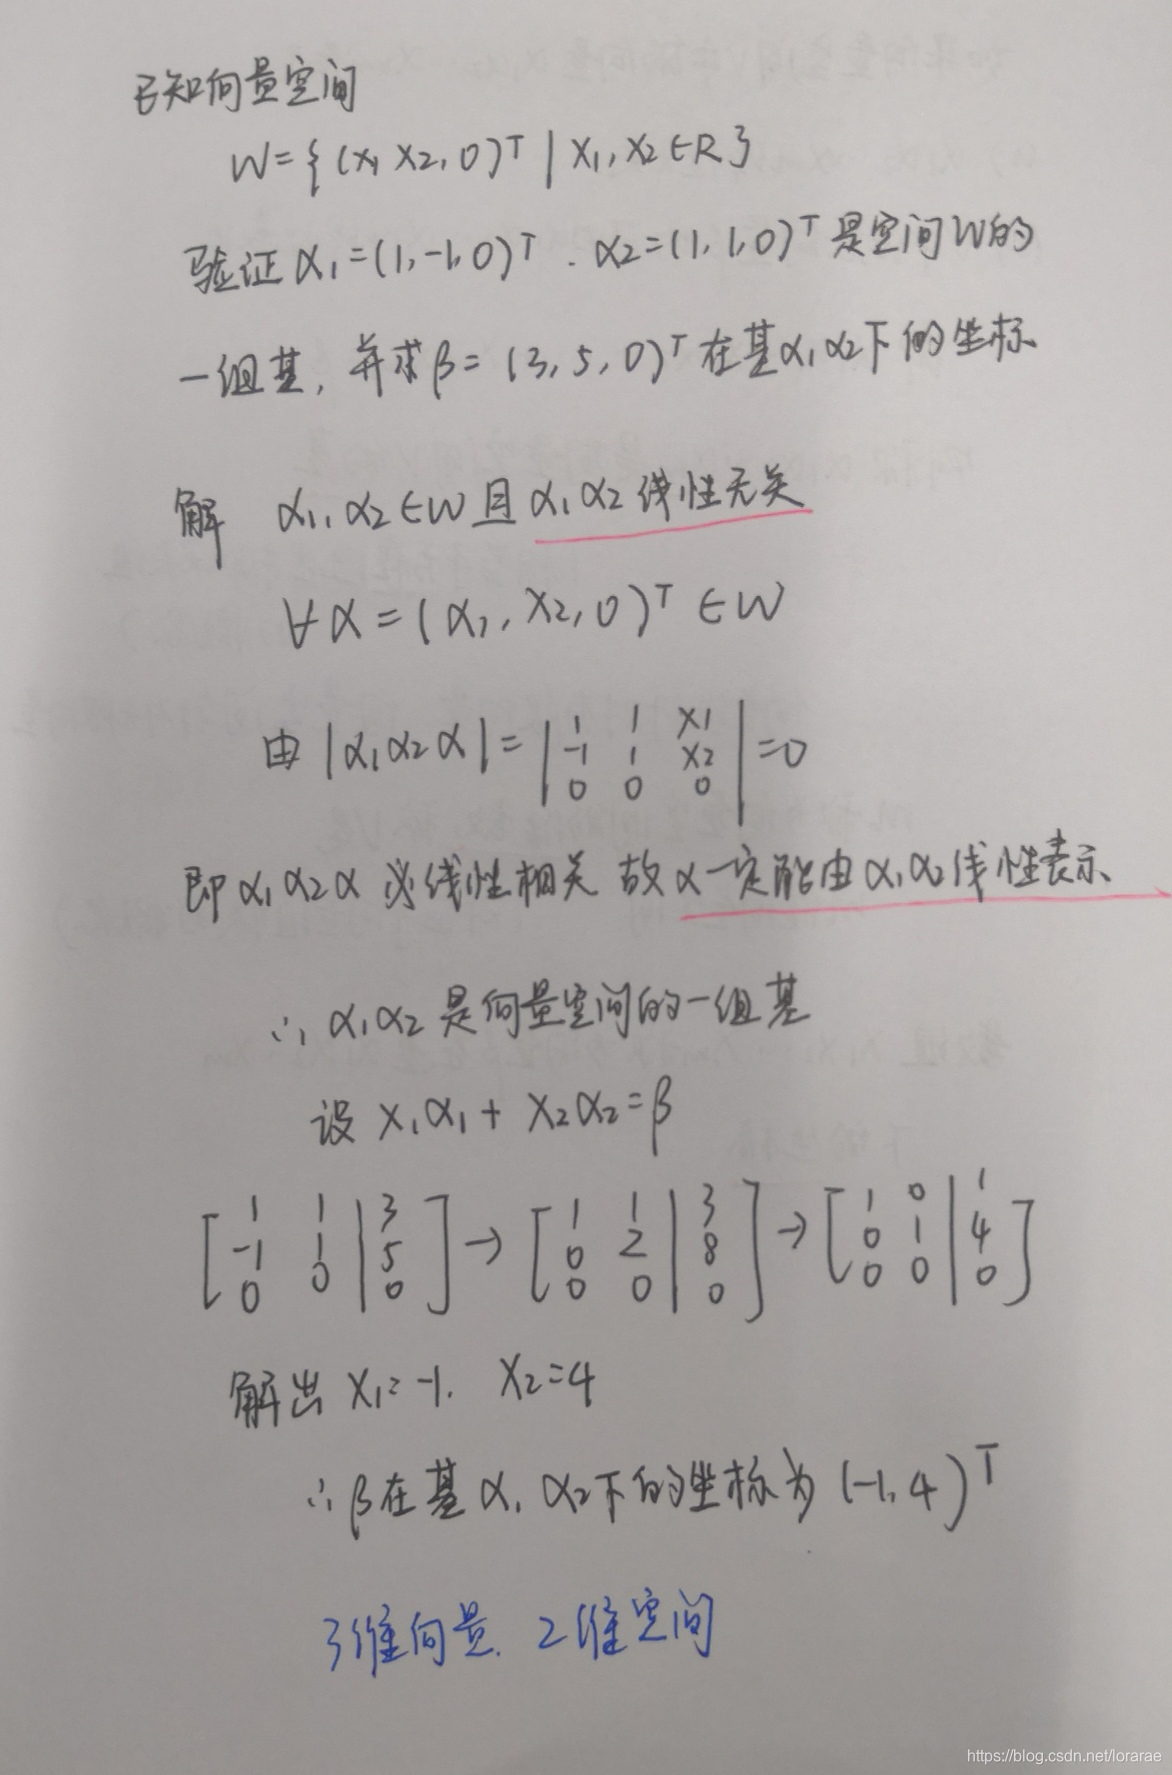 已知向量空间
W={(x₁ x₂,0)ᵀ | x₁,x₂∈R}
验证α₁=(1,-1,0)ᵀ.α₂=(1,1,0)ᵀ是空间W的
一组基,并求β=(3,5,0)ᵀ在基α₁α₂下的坐标
解 α₁,α₂∈W且α₁α₂线性无关
∀α=(α₁,x₂,0)ᵀ∈W
由|α₁α₂α|=| 1 1 x1 ; -1 1 x2 ; 0 0 0 |=0
即α₁α₂α必线性相关 故α一定能由α₁α₂线性表示
∴α₁α₂是向量空间的一组基
设 x₁α₁+x₂α₂=β
[ 1 1 | 3 ; -1 1 | 5 ; 0 0 | 0 ]→[ 1 1 | 3 ; 0 2 | 8 ; 0 0 | 0 ]→[ 1 0 | 1 ; 0 1 | 4 ; 0 0 | 0 ]
解出 x₁=-1. x₂=4
∴β在基α₁α₂下的坐标为(-1,4)ᵀ
3维向量.2维空间
https://blog.csdn.net/lorarae